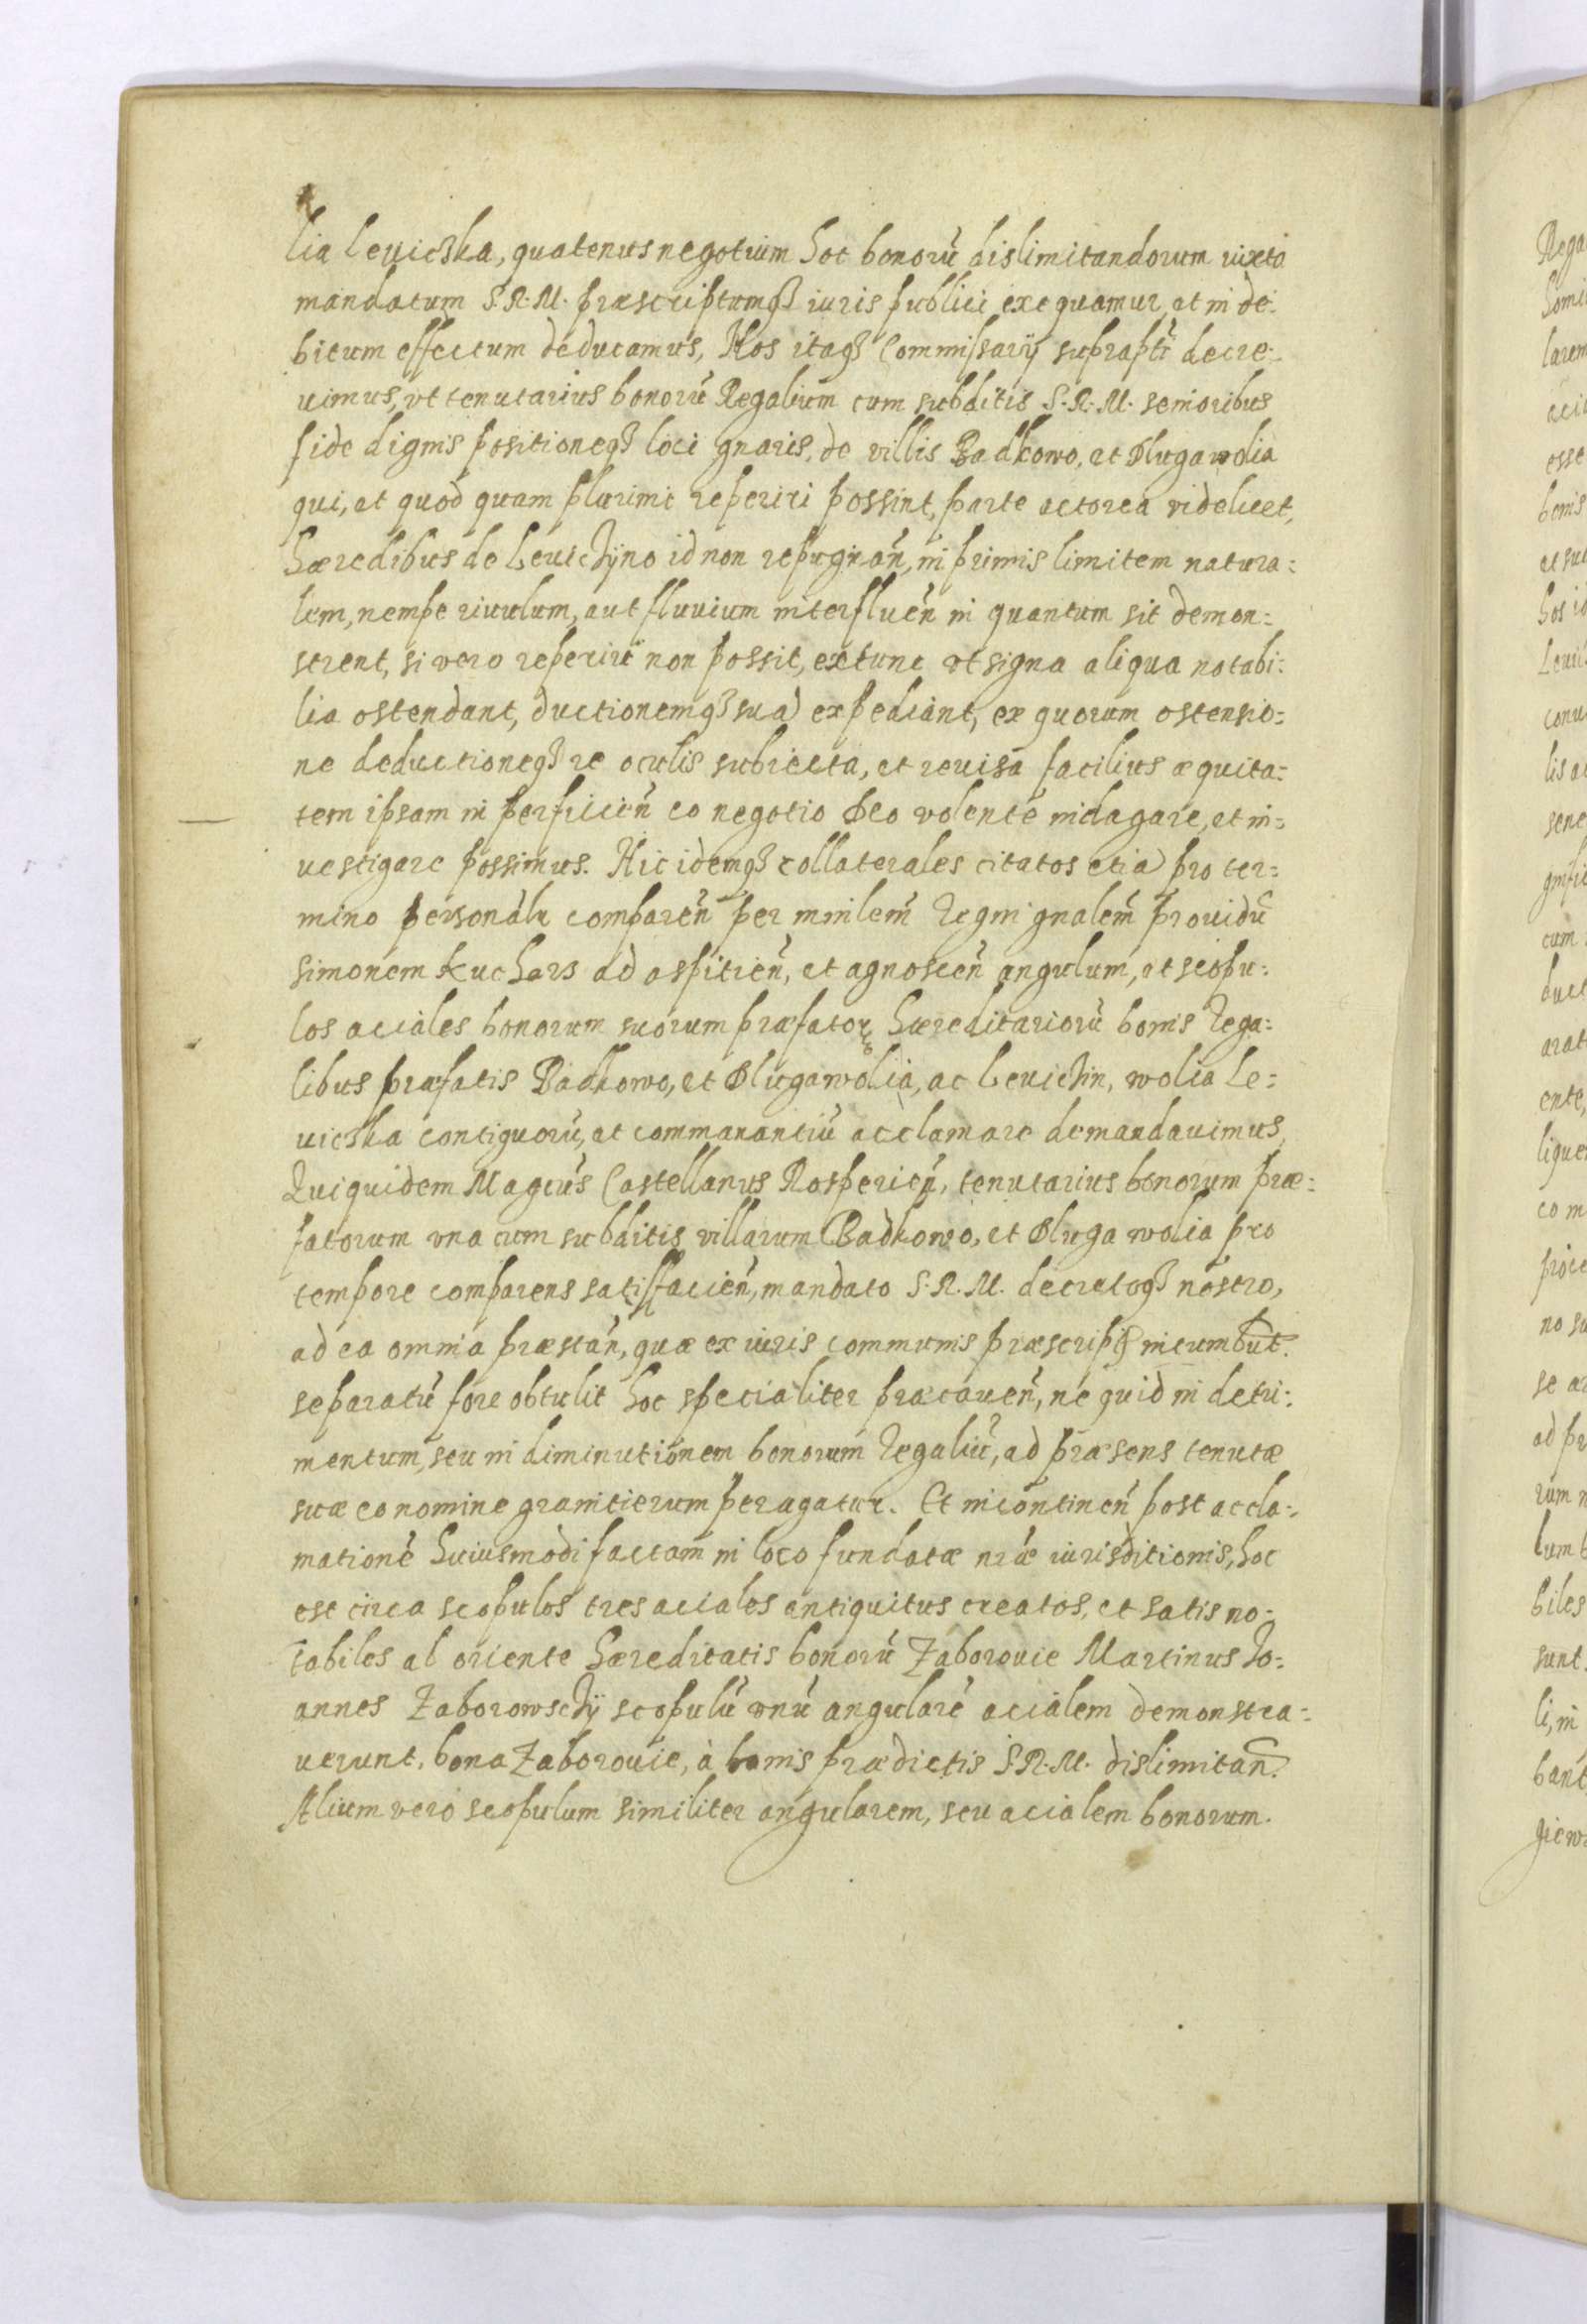 lia Leuicska, quatenus negotium hoc bonorũ dislimitandorum iuxta
mandatum S.R.M. præscriptumqȝ iuris publici exequamur, et in de:
bitum effectum deducamus, Nos itaqȝ Commissarij supraptĩ decre:
uimus, vt tenutarius bonorũ Regalium cum subditis S.R.M. senioribus
fide dignis positioneqȝ loci gnaris, de villis Badkowo, et Dlugawolia
qui, et quod quam plurimi reperiri possint, parte actorea videlicet,
hæredibus de Leuichÿno id non repugnañ, in primis limitem natura:
lem, nempe riuulum, aut fluuium interflueñ in quantum sit demon:
strent, si vero reperiri non possit, extunc vt signa aliqua notabi:
lia ostendant, ductionemqȝ suã expediant, ex quorum ostensio:
ne deductioneqȝ re oculis subiecta, et reuisa facilius æquita:
tem ipsam in perficieñ eo negotio Deo volente indagare, et in:
uestigare possimus. Hic idemqȝ collaterales citatos etiã pro ter:
mino personalr compareñ per minlem̃ Regni gnalem̃ prouidũ
simonem Kuchars ad aspicieñ, et agnosceñ angulum, et scopu:
los aciales bonorum suorum præfatoꝝ hæreditariorũ bonis Rega:
libus præfatis Badkowo, et Dlugawolia, ac Leuichin, wolia Le:
uicska contiguorũ, et commanantiũ acclamare demandauimus,
Quiquidem Magcũs Castellanus Rosperieñ, tenutarius bonorum præ:
fatorum vna cum subditis villarum Badkowo, et Dluga wolia pro
tempore comparens satisfacieñ, mandato S.R.M. decretoqȝ nostro,
ad ea omnia præstañ, quæ ex iuris communis incumbũt.
separatũ fore obtulit hoc specialiter præcaueñ, ne quid in detri:
mentum, seu in diminutionem bonorum Regaliũ, ad præsens tenutæ
suæ eo nomine granitierum peragatur. Et incontineñ post accla:
mationẽ huiusmodi factam in loco fundatæ nræ iurisditionis, hoc
est circa scopulos tres aciales antiquitus creatos, et satis no:
tabiles al oriente hæreditatis bonorũ Zaborouie Martinus Jo:
annes Zaborowschÿ scopulũ vnũ angularẽ acialem demonstra:
uerunt, bona Zaborouie, à bonis prædictis S.R.M. dislimitañ.
Alium vero scopulum similiter angularem, seu acialem bonorum.